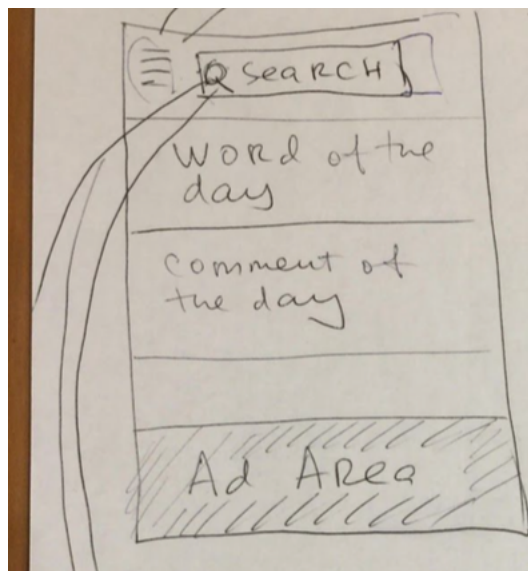 SeaRCH
WORd of the
day
Comment of
the day
Ad ARea